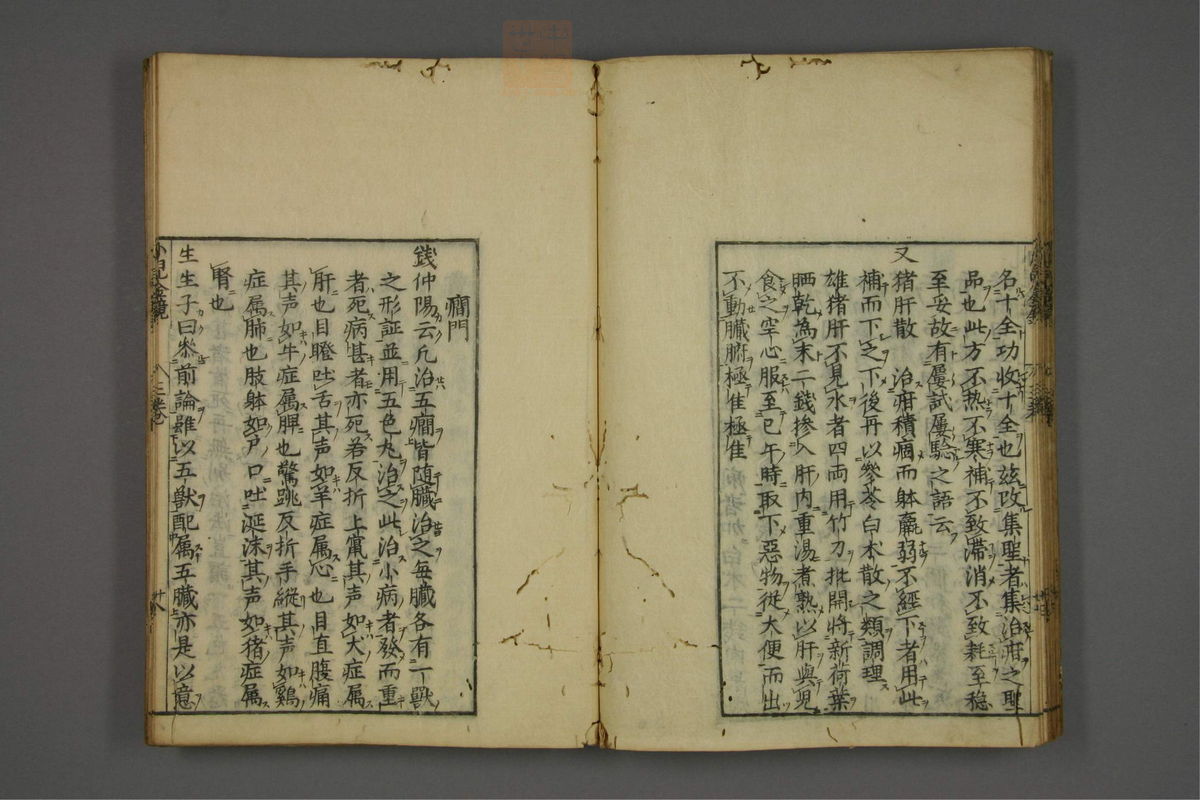 名十全功收十全也玆改集聖者集治疳之聖
品也此方不熱不寒補不致滯消不致耗至穏
至妥故有屢試屢驗之語云
又
猪肝散　治疳積痢而躰羸弱不經下者用此
補而下之下後再以參苓白朮散之類調理
雄猪肝不見水者四両用竹刀批開將新荷葉
晒乾為末二錢摻入肝内重湯煮熟以肝與児
食之空心服至巳午時取下惡物從大便而出
不動臓腑極佳極佳
癇門
錢仲陽云凢治五癇皆随臓治之毎臓各有一獸
之形証並用五色丸治之此治小病者發而重
者死病甚者亦死若反折上竄其声如犬症属
肝也目瞪吐舌其声如羊症属心也目直腹痛
其声如牛症属脾也驚跳反折手縱其声如鷄
症属肺也肢躰如尸口吐涎沫其声如猪症属
腎也
生生子曰叅前論雖以五獸配属五臓亦是以意